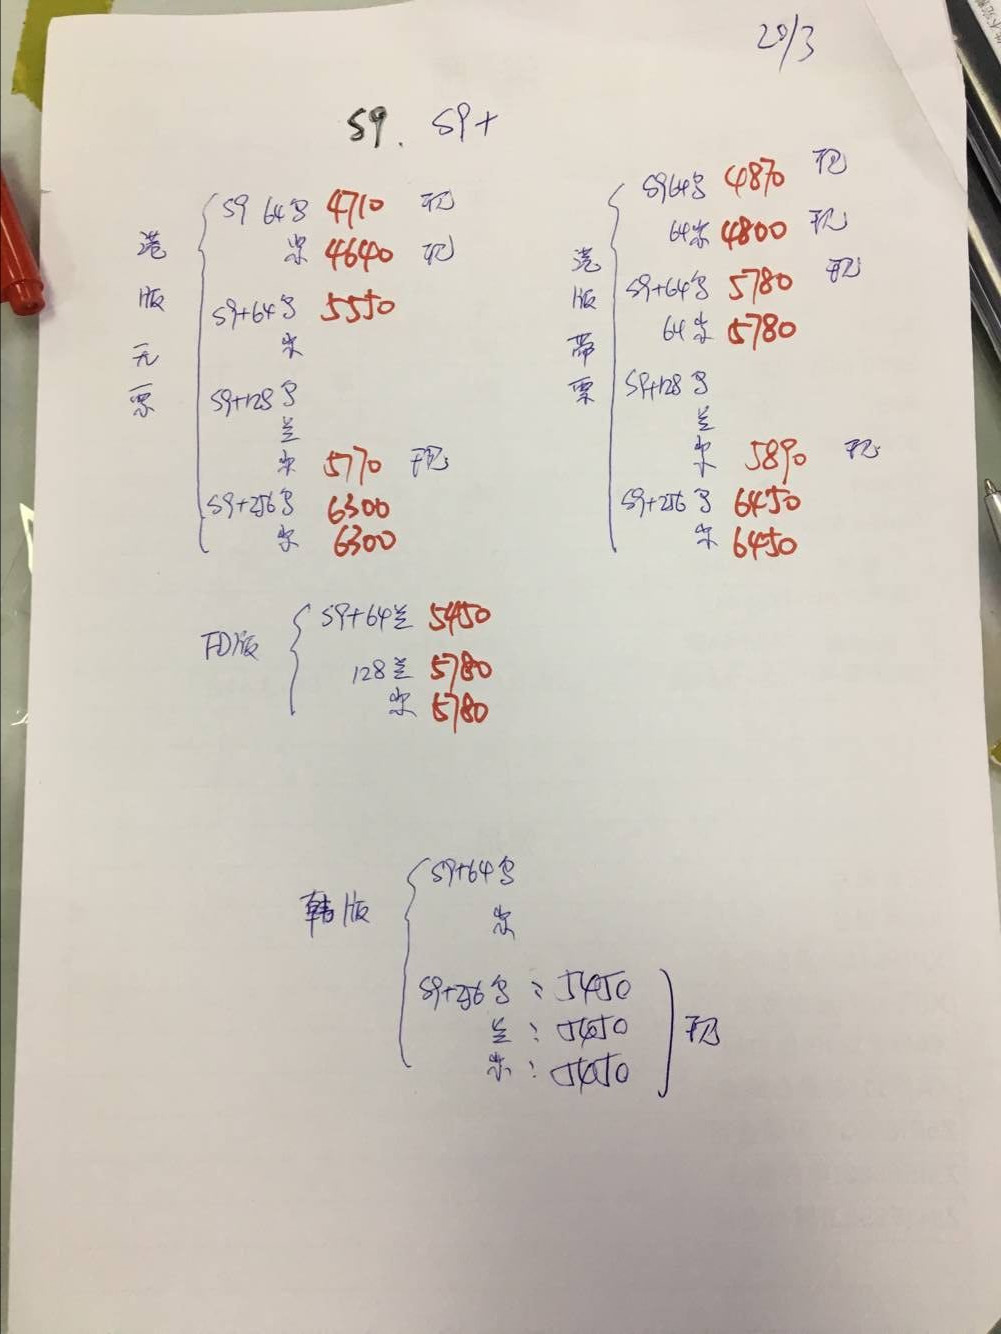 20/3
S9. S9+
港版无票
S9 64黑 4710 现
紫 4640 现
S9+64黑 5550
紫
S9+128黑
兰
紫 5770 现
S9+256黑 6300
紫 6300
港版带票
S964黑 4870 现
64紫 4800 现
S9+64黑 5780 现
64紫 5780
S9+128黑
兰
紫 5890 现
S9+256黑 6450
紫 6450
TD版
S9+64兰 5450
128兰 5780
紫 5780
韩版
S9+64黑
紫
S9+256黑: 5450
兰: 5450
紫: 5450
现